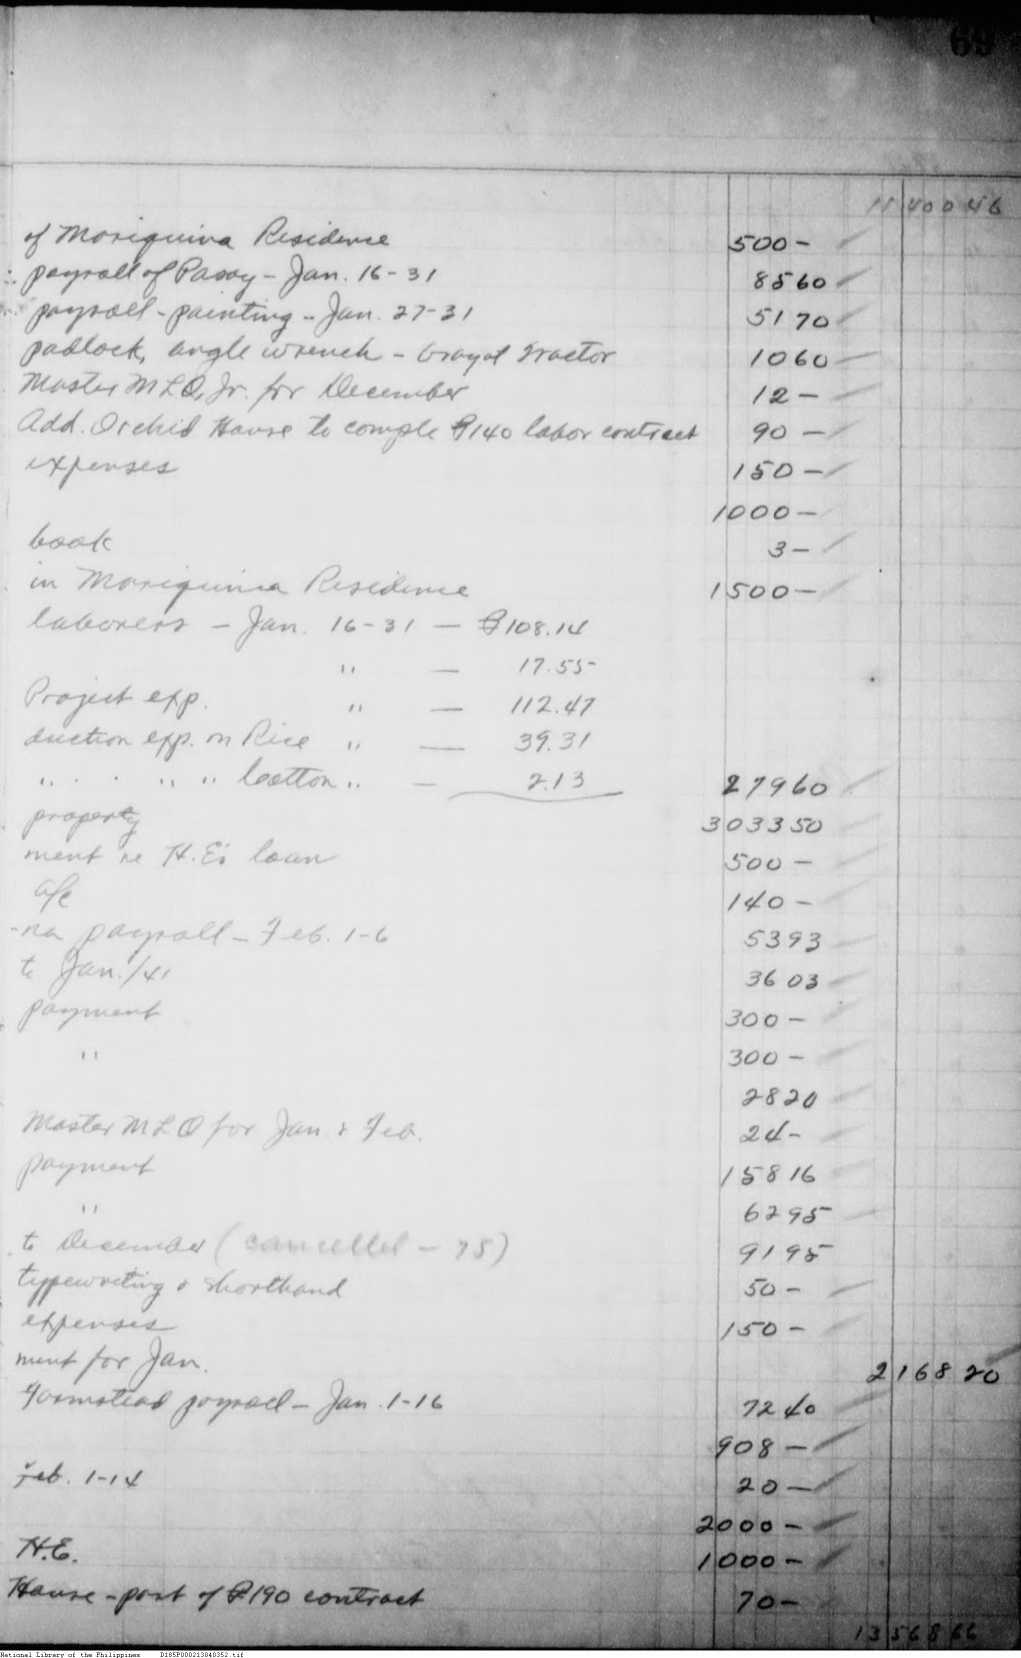 69
11 400 46
of Mariquina Residence 500 -
payroll of Pasay - Jan. 16-31 85 60
payroll - painting - Jan. 27-31 51 70
padlock, angle wrench - Grayat Tractor 10 60
Master MLQ, Jr. for December 12 -
Add. Orchid House to comple ₱140 labor contract 90 -
expenses 150 -
1000 -
book 3 -
in Mariquina Residence 1500 -
laborers - Jan. 16-31 - ₱108.14
" - 17.55
Project exp. " - 112.47
duction exp. on Rice " - 39.31
" " " Cotton " - 2.13 279 60
property 3033 50
ment re H.E.'s loan 500 -
a/c 140 -
-na payroll - Feb. 1-6 53 93
to Jan./41 36 03
payment 300 -
" 300 -
28 20
Master MLQ for Jan & Feb. 24 -
payment 158 16
" 62 95
to December (cancelled - 75) 91 95
typewriting & shorthand 50 -
expenses 150 -
ment for Jan. 2168 20
Farmstead payroll - Jan. 1-16 72 40
908 -
Feb. 1-14 20 -
2000 -
H.E. 1000 -
House - part of ₱190 contract 70 -
13568 66
National Library of the Philippines D185P000213040352.tif